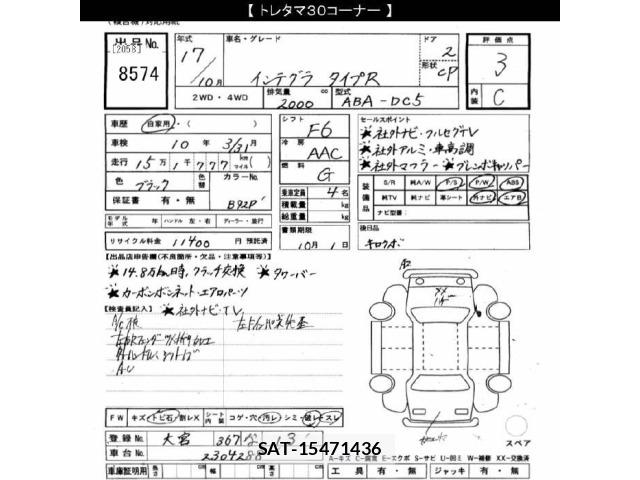 【 トレタマ30コーナー 】
出品No.
[2058]
8574
年式
17
10月
車名・グレード
インテグラ タイプR
ドア
2
形状
CP
評価点
3
内装
C
2WD・4WD
排気量
2000
cc
型式
ABA-DC5
車歴
自家用・(
)
車検
10 年 3/31 月
走行
15万1千777
km
マイル
色
ブラック
色替
カラーNo.
B92P
保証書
有・無
モデル年式
年
ハンドル 左・右
ディーラー・並行
リサイクル料金
11400
円 預託済
シフト
F6
冷房
AAC
燃料
G
乗車定員
4名
積載量
kg
総重量
kg
書類期限
10月1日
セールスポイント
★社外ナビ・フルセグTV
★社外アルミ・車高調
★社外マフラー ★ブレンボキャリパー
装備品
S/R
純A/W
P/S
P/W
ABS
純TV
純ナビ
革シート
外ナビ
エアB
ナビ型番:
後日品
キロクボ
【出品店申告欄(不良箇所・欠品・注意事項等)】
★14.8万km時、クラッチ交換 ★タワーバー
★カーボンボンネット・エアロパーツ
【検査員記入】
★社外ナビ・TV
A2
XX
FW
キズ・トビ石・割レX
シート内装
コゲ・穴・汚レ・シミ・破レ・スレ
登録No.
大宮 367 な
車台No.
2304288
スペア
SAT-15471436
A-キズ
E-エクボ S-サビ U-凹ミ W-補修 XX-交換済
車庫証明用
長さ
cm
幅
cm
高さ
cm
工具
有・無
ジャッキ
有・無